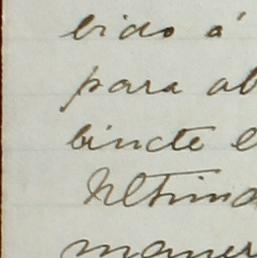 bido á
para ab
bincte e
Ultima
maner